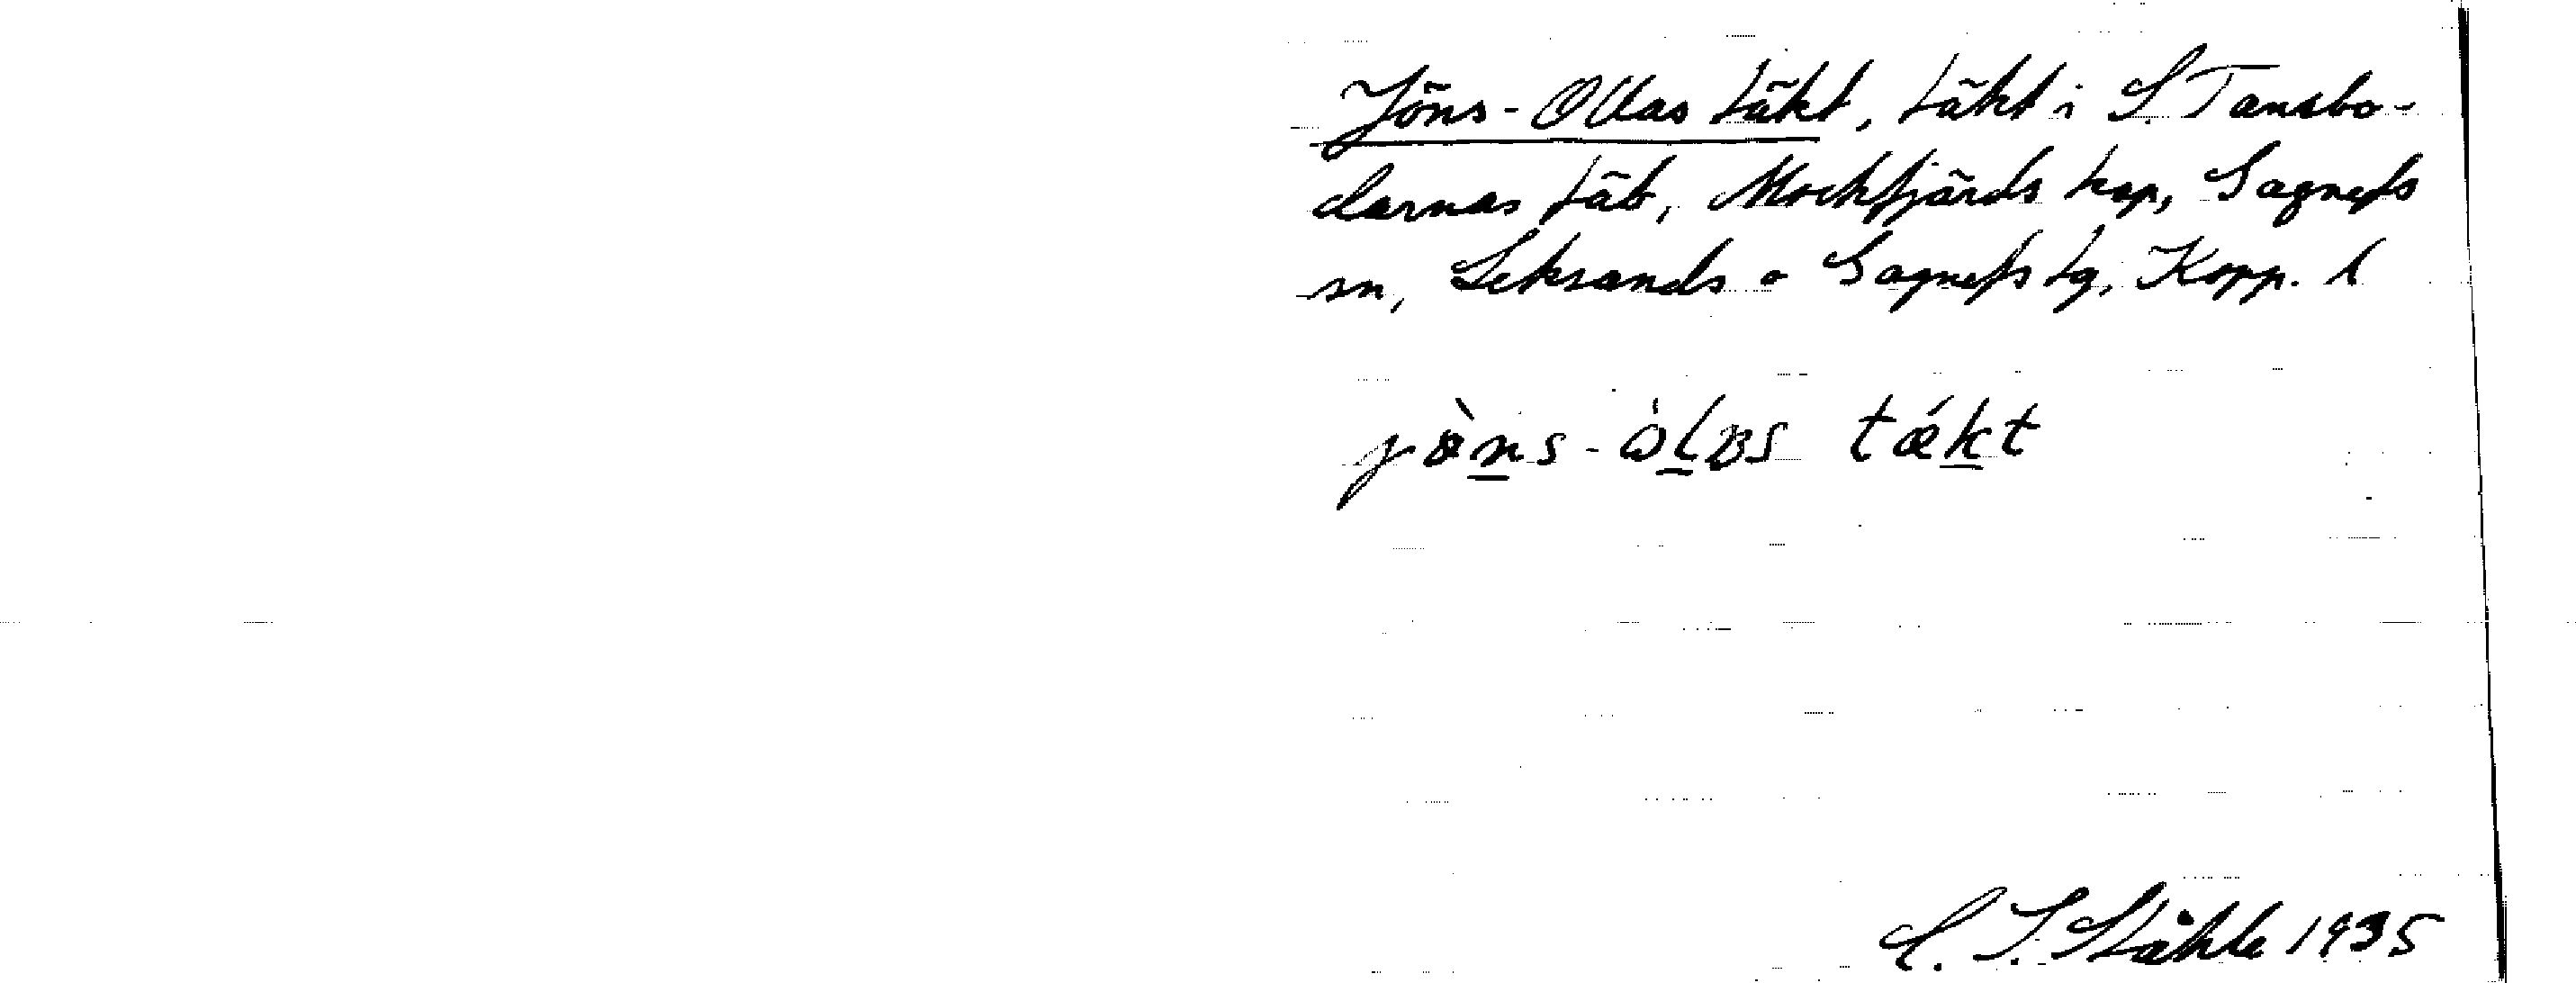 Jöns-Ollas täkt, täkt i S. Tansbo-
darnas fäb, Mockfjärds kap, Gagnefs
sn, Leksands o Gagnefs tg, Kopp. l
jö̀ns-òlas tǽkt
C. I. Ståhle 1935